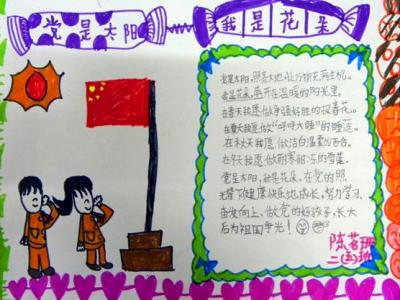 党是太阳
我是花朵
党是太阳,照亮大地,让万物充满生机。
我是花朵,盛开在温暖的阳光里。
在春天我愿做争强好胜的报春花。
在夏天我愿做"呼呼大睡"的睡莲。
在秋天我愿做洁白温馨的百合。
在冬天我愿做耐寒耐冻的雪莲。
党是太阳,我是花朵,在党的照
耀下健康快乐地成长。努力学习,
奋发向上,做党的好孩子,长大
后为祖国争光!
陈茗珊
二(五)班